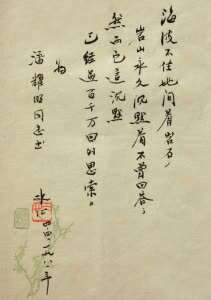 海波不住地问着岩石，
岩石永久沉默着不曾回答；
然而它这沉默
已经过百千万回的思索。
为
潘耀明同志书
冰心 一九八一年